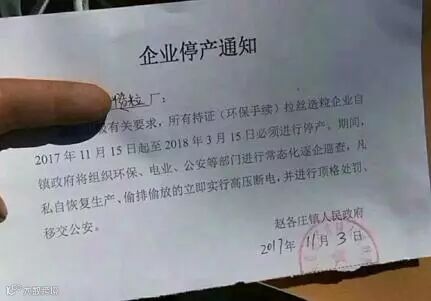 企业停产通知
粒厂:
级有关要求，所有持证（环保手续）拉丝造粒企业自
2017年11月15日起至2018年3月15日必须进行停产。期间，
镇政府将组织环保、电业、公安等部门进行常态化逐企巡查，凡
私自恢复生产、偷排偷放的立即实行高压断电，并进行顶格处罚、
移交公安。
赵各庄镇人民政府
2017年11月3日